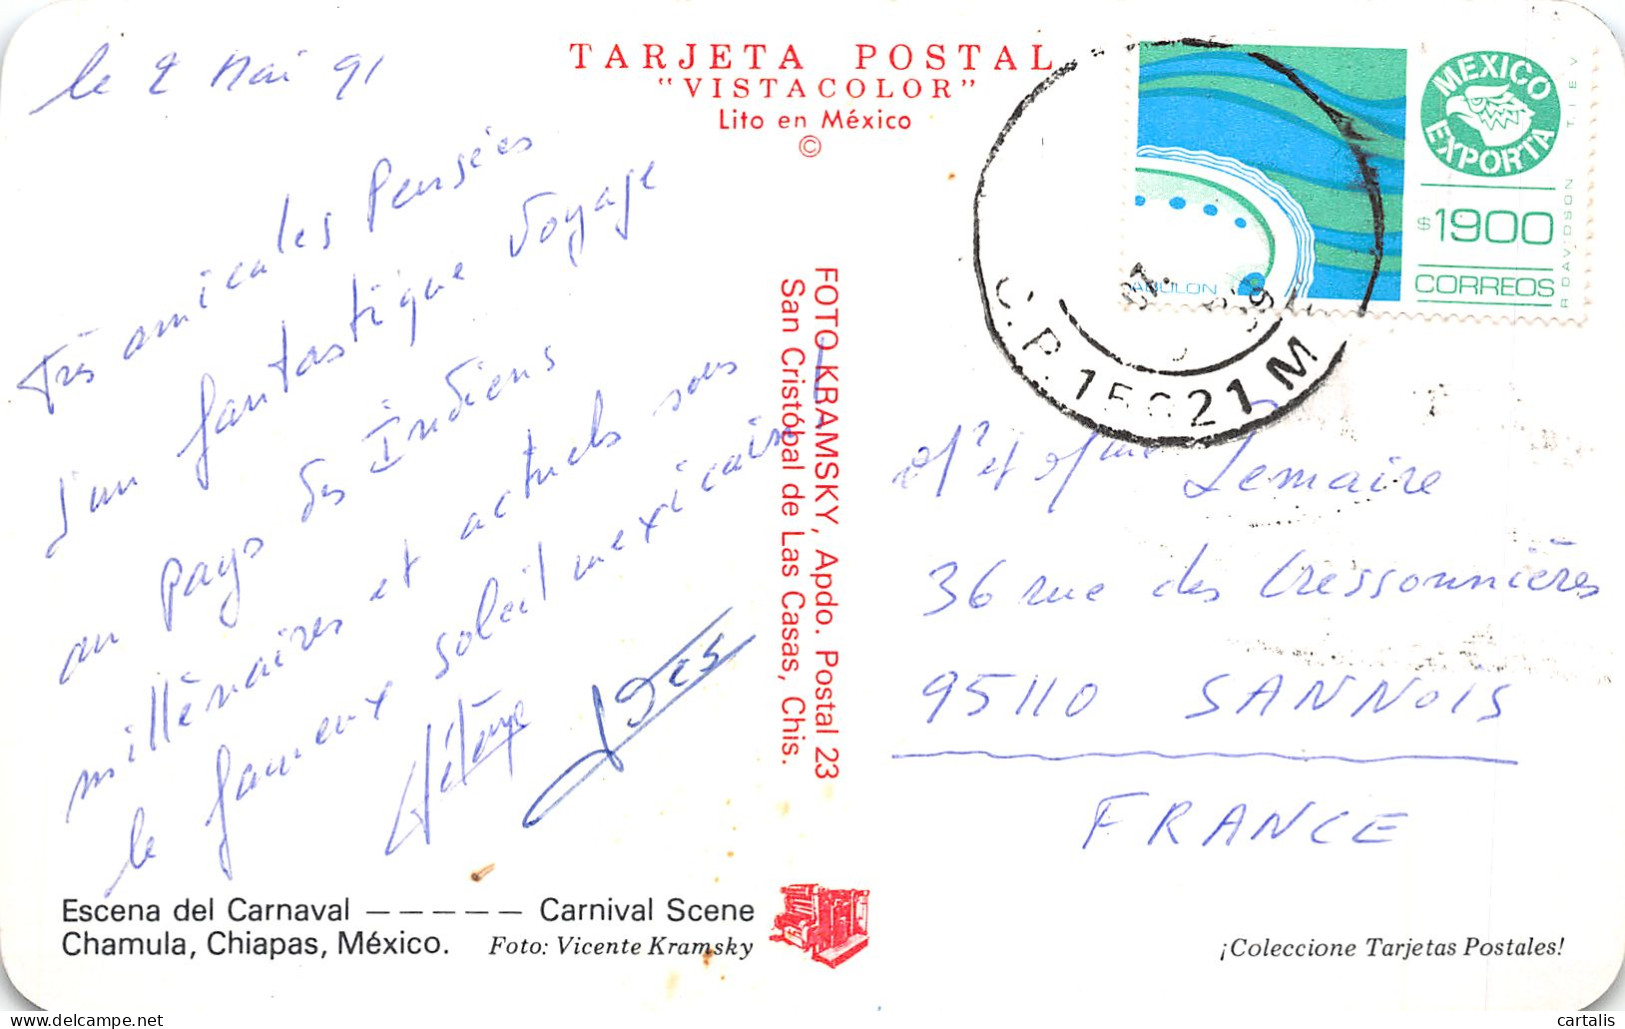 le 2 Mai 91
TARJETA POSTAL
"VISTACOLOR"
Lito en México
©
MEXICO EXPORTA
$1900
CORREOS
ABULON
R DAVIDSON T.I.E.V
C.P. 15 21 M
Très amicales Pensées
d'un fantastique voyage
au pays des Indiens
millénaires et actuels sous
le fameux soleil mexicain
FOTO KRAMSKY, Apdo. Postal 23
San Cristóbal de Las Casas, Chis.
Mr et Mme Lemaire
36 rue des Cressonnières
95110 SANNOIS
FRANCE
Escena del Carnaval ————— Carnival Scene
Chamula, Chiapas, México. Foto: Vicente Kramsky
¡Coleccione Tarjetas Postales!
www.delcampe.net
cartalis